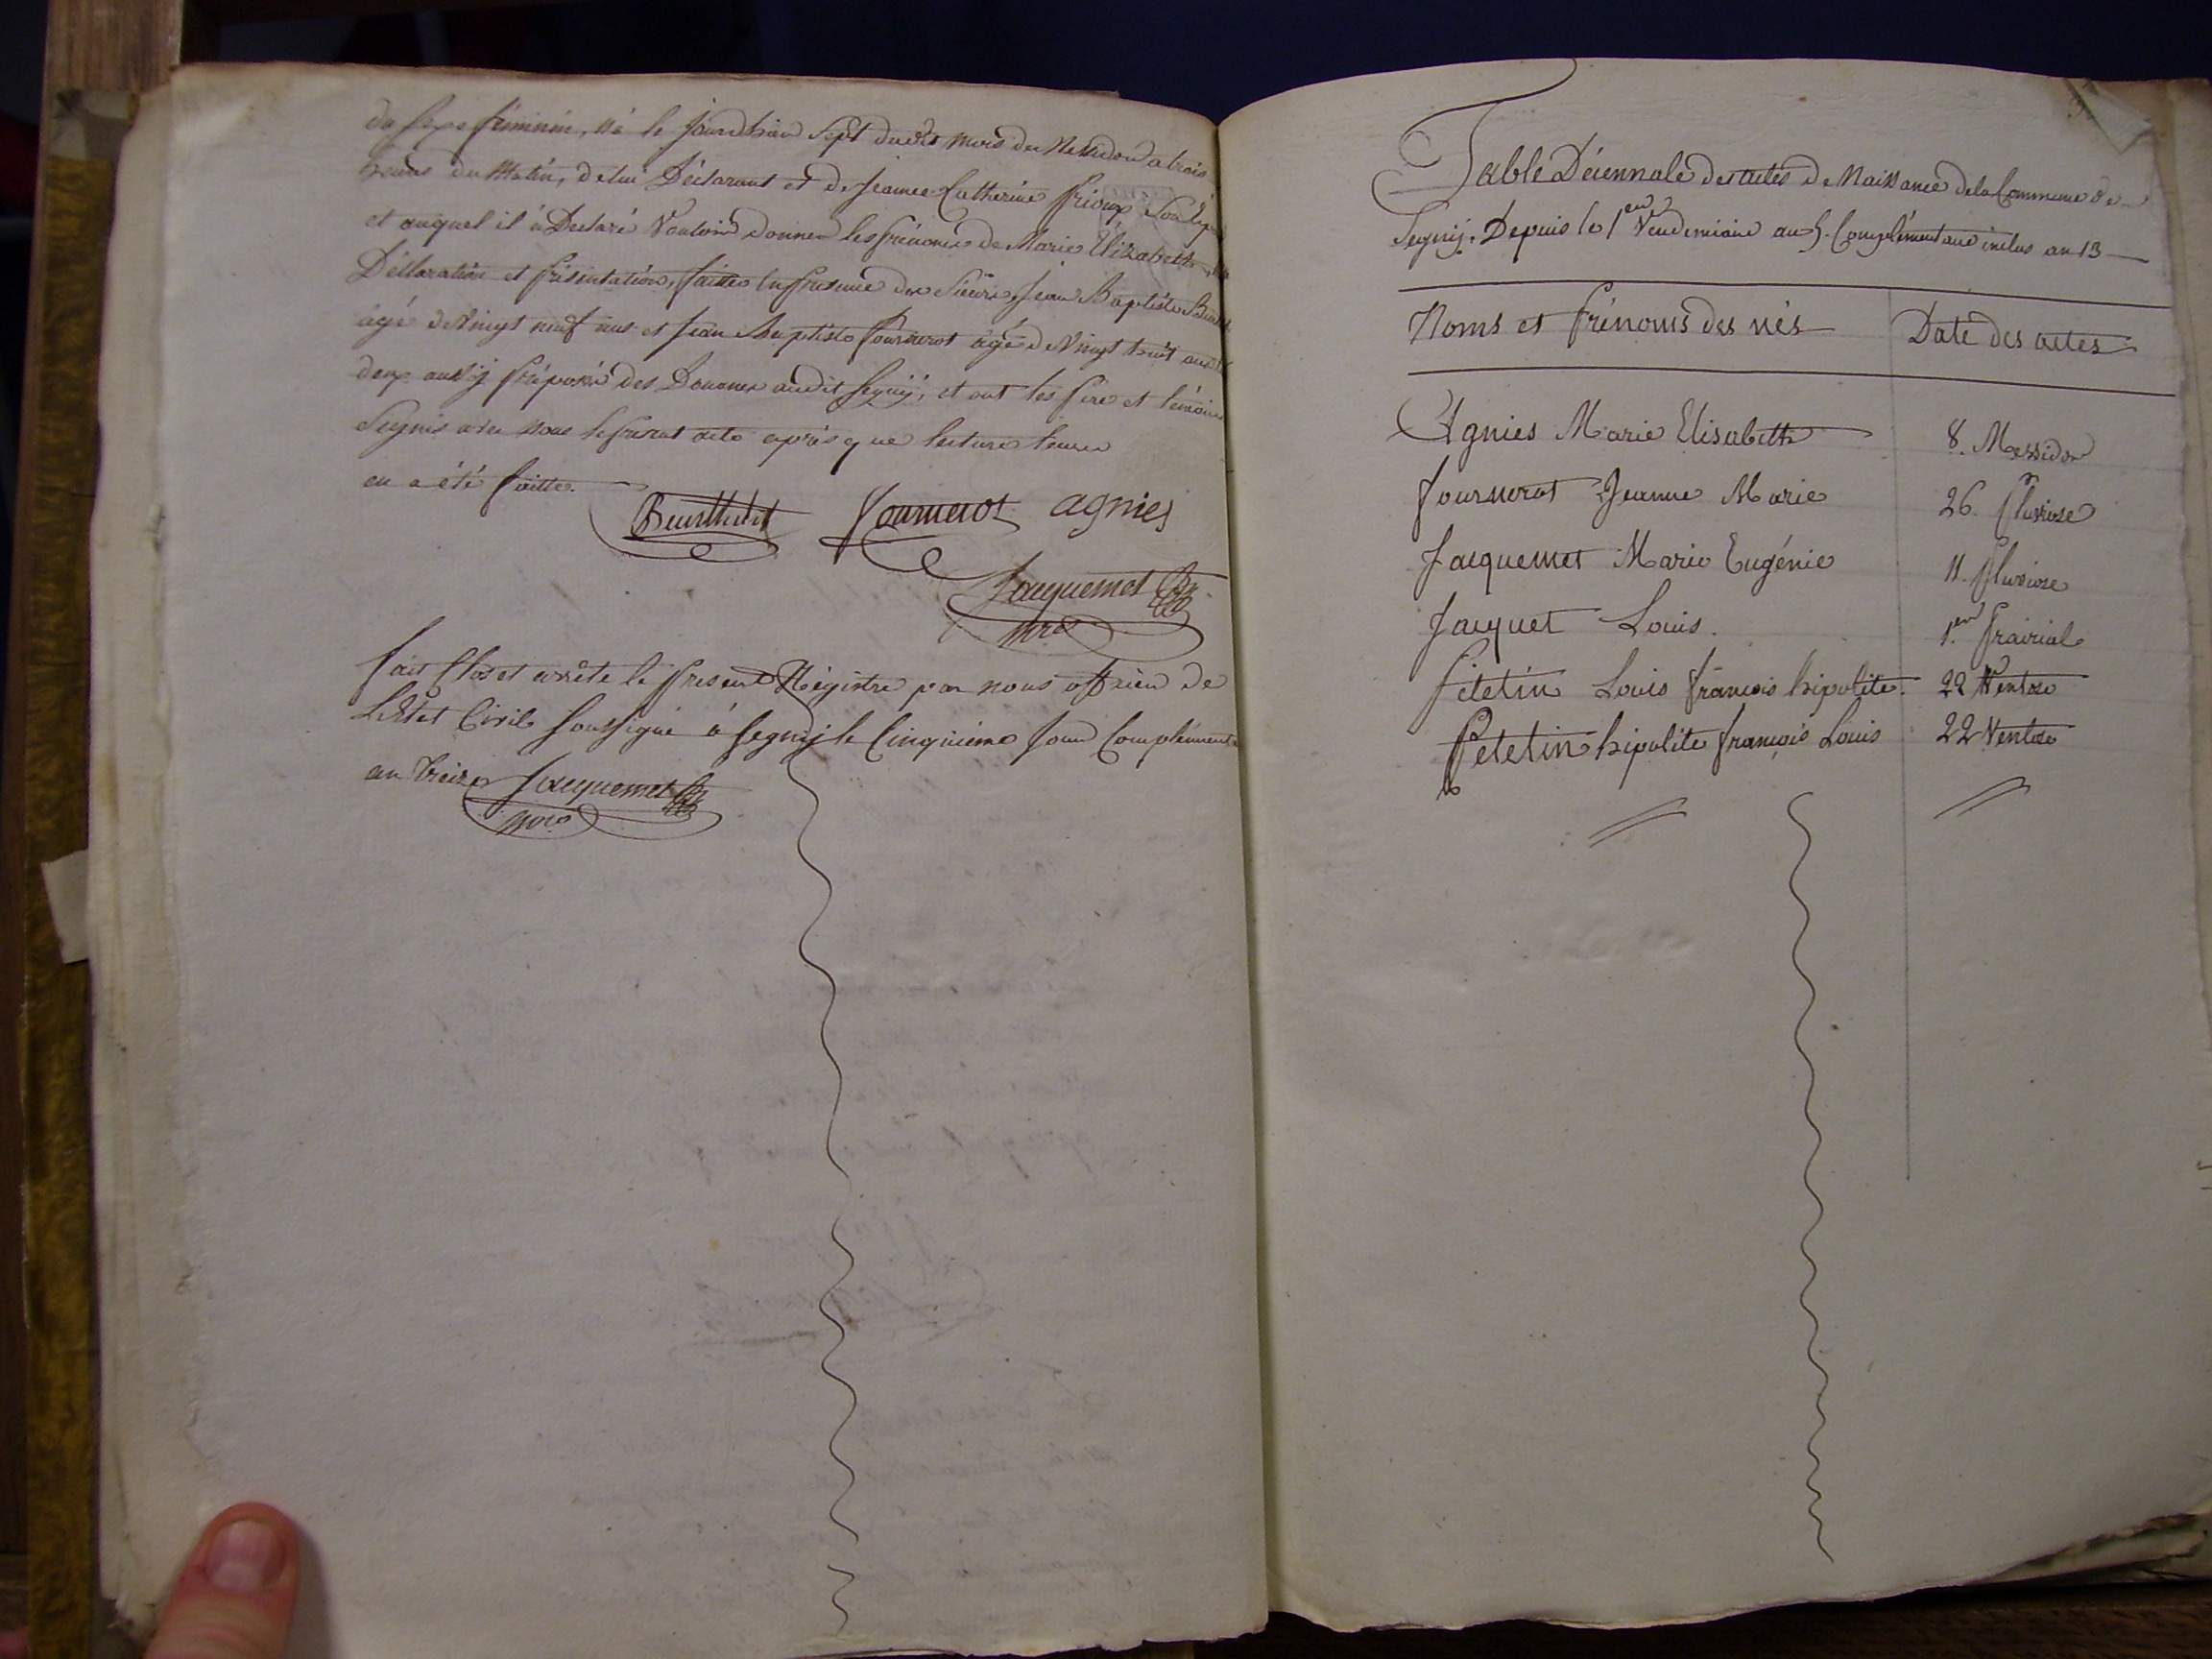 du sexe féminin, né le Jourdhier sept dudit mois de Messidor a trois
heures du Matin, de lui Déclarant et de Jeanne Catherine
et auquel il à Declaré Vouloir donner les prénoms de Marie Elizabeth
Déclaration et présentation, faites En presence des Sieurs Jean Baptiste
agé de Vingt neuf ans et Jean Baptiste Fournerot agé de Vingt huit ans
deux aussÿ préposé des Douanes audit Segnÿ, et ont les père et témoins
Signés avec nous le présent acte après que lecture leurs
en a été faitte.
Fournerot agnies
Jacquemet
Mre
Fait Clos et arrêté le present Régistre par nous officier de
L'Etat Civil soussigné à Segnÿ le Cinquième Jour Complément
an treize Jacquemet
Mre
Table Décennale des actes de Naissance de la Commune de
Segnÿ. Depuis le 1er Vendemiaire au 5. Complémentaire inclus an 13
Noms et prénoms des nés
Date des actes
Agnies Marie Elisabeth 8. Messidor
Fournerot Jeanne Marie 26. Pluviose
Jacquemet Marie Eugénie 11. Pluviose
Jacquet Louis. 1.er Prairial
Petetin Louis françois hipolite. 22 Ventose
Petetin hipolite françois Louis 22 Ventose